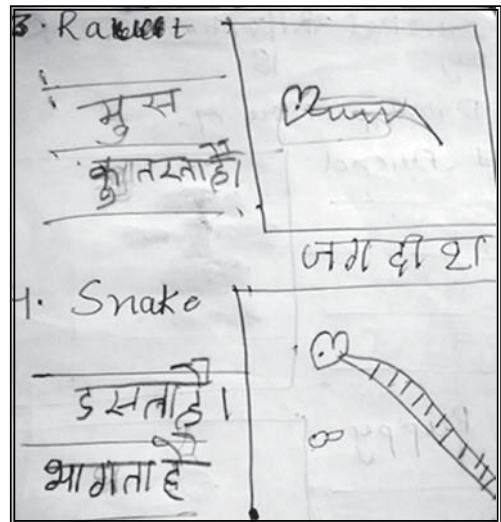 3. Ra
मुस
कुतरताहै।
जगदीश
4. Snake
डसताहै।
भागताहै